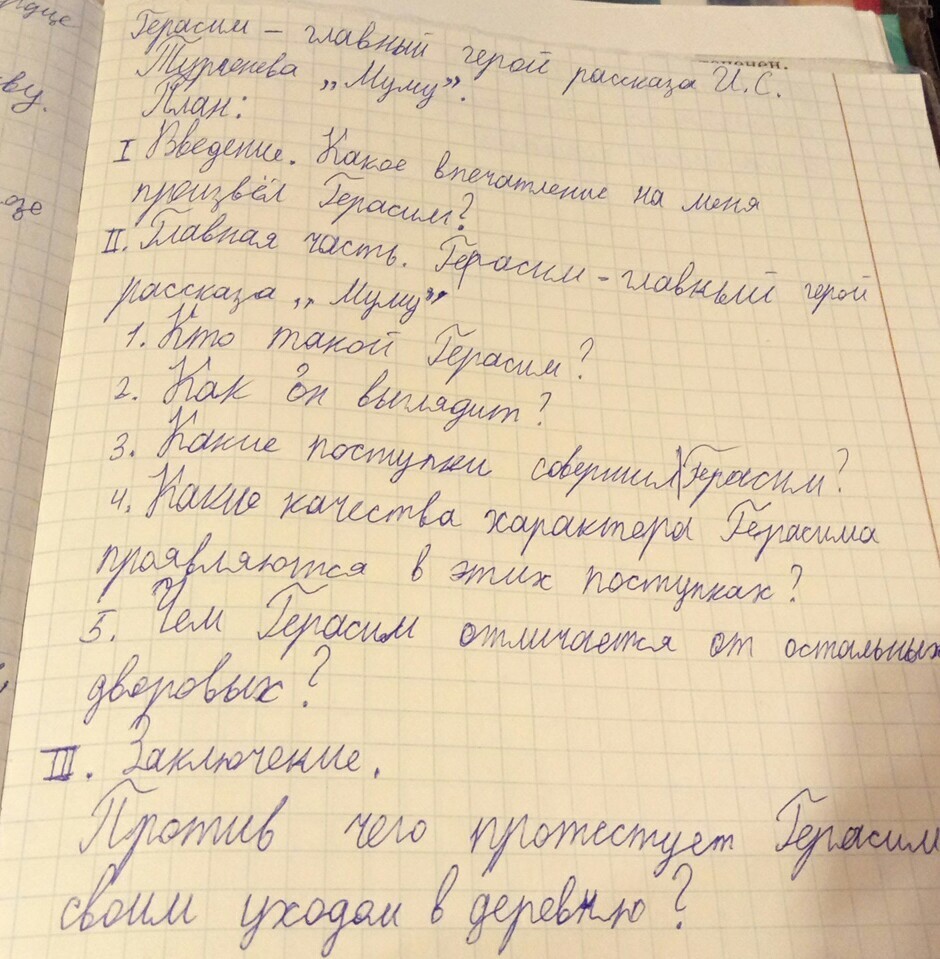 Герасим – главный герой рассказа И.С.
Тургенева „Муму”.
План:
I Введение. Какое впечатление на меня
произвёл Герасим?
II. Главная часть. Герасим – главный герой
рассказа „Муму”
1. Кто такой Герасим?
2. Как он выглядит?
3. Какие поступки совершил Герасим?
4. Какие качества характера Герасима
проявляются в этих поступках?
5. Чем Герасим отличается от остальных
дворовых?
III. Заключение.
Против чего протестует Герасим
своим уходом в деревню?